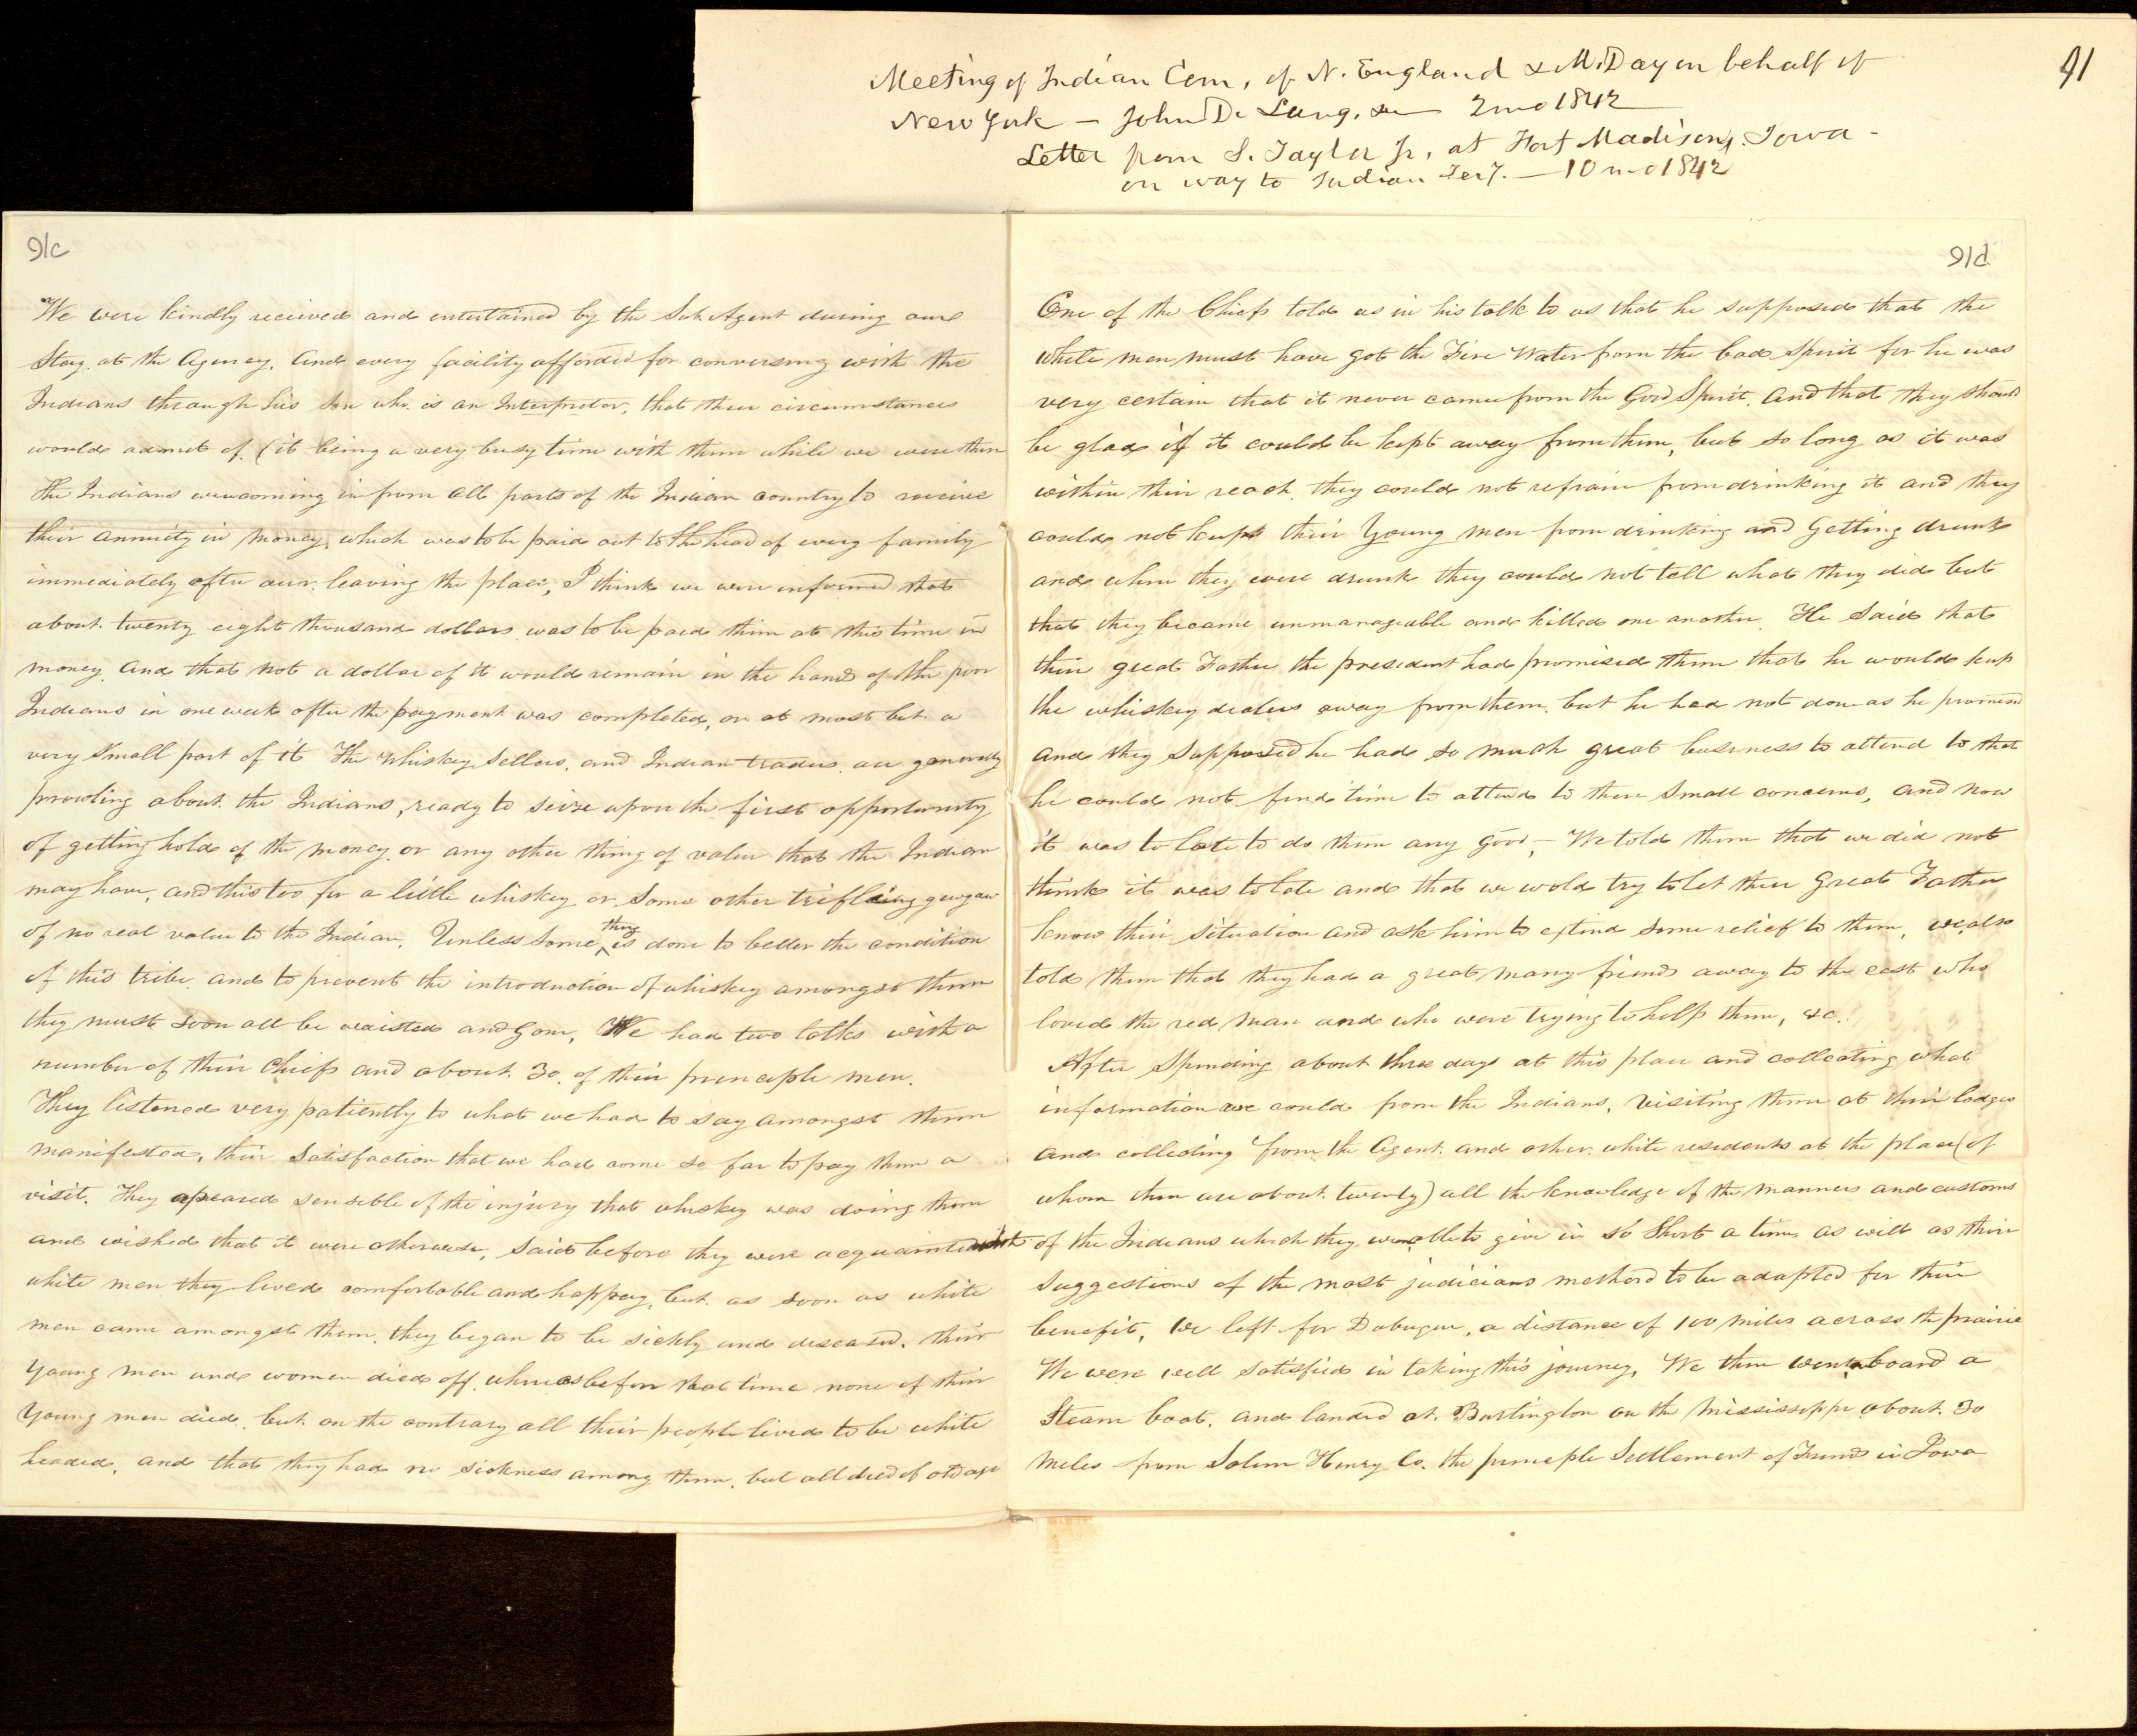 Meeting of Indian Com, of N. England & M. Day on behalf of
New York — John D. Lang, 2mo 1842
Letter from S. Taylor Jr, at Fort Madison, Iowa -
on way to Indian Terr. — 10mo 1842
91
91c
We were kindly recieved and entertained by the Sub Agent during our
Stay at the Agency, and every facility afforded for conversing with the
Indians through his Son who is an Interpretor, that their circumstances
would admit of (it being a very busy time with them while we were there
The Indians were coming in from all parts of the Indian country to receive
their annuity in money, which was to be paid out to the head of every family
immediately after our leaving the place, I think we were informed that
about twenty eight thousand dollars was to be paid them at this time in
money and that not a dollar of it would remain in the hands of the poor
Indians in one week after the payment was completed, or at most but a
very small part of it The whiskey sellers, and Indian traders are generally
prowling about the Indians, ready to seize upon the first opportunity
of getting hold of the money or any other thing of value that the Indian
may have, and this too for a little whiskey or some other trifling gewgaw
of no real value to the Indian, Unless some thing is done to better the condition
of this tribe and to prevent the introduction of whiskey amongst them
they must soon all be waisted and gone, We had two talks with a
number of their Chiefs and about 30 of their principle men.
They listened very patiently to what we had to say amongst them
manifested, their satisfaction that we had come so far to pay them a
visit. They apeared sensible of the injury that whiskey was doing them
and wished that it were otherwise, said before they were acquainted with
white men they lived comfortable and happy, but as soon as white
men came amongst them, they began to be sickly and diseased, their
young men and women died off, whereas before that time none of their
young men died, but on the contrary all their people lived to be white
headed, and that they had no sickness among them, but all died of old age
91d
One of the Chiefs told us in his talk to us that he supposed that the
white men must have got the Fire Water from the bad Spirit for he was
very certain that it never came from the Good Spirit, and that they should
be glad if it could be kept away from them, but so long as it was
within their reach they could not refrain from drinking it and they
could not keep their Young men from drinking and Getting drunk
and when they were drunk they could not tell what they did but
that they became unmanageable and killed one another. He said that
their great Father the president had promised them that he would keep
the whiskey dealers away from them, but he had not done as he promised
and they supposed he had so much great business to attend to that
he could not find time to attend to these small concerns, and now
it was to late to do them any good, — We told them that we did not
think it was to late and that we wold try to let their Great Father
know their situation and ask him to extend some relief to them, we also
told them that they had a great many friends away to the east who
loved the red man and who were trying to help them, &c.
After Spending about three days at this place and collecting what
information we could from the Indians, visiting them at their lodges
and collecting from the Agent and other white residents at the place (of
whom there are about twenty) all the knowledge of the manners and customs
of the Indians which they were able to give in so Short a time as well as their
suggestions of the most judicious method to be adopted for their
benefit, We left for Dubuque, a distance of 100 miles across the prairie
We were well satisfied in taking this journey, We then went aboard a
Steam boat, and landed at Burlington on the Mississippi about 30
miles from Salem Henry Co. the principle Settlement of Friends in Iowa